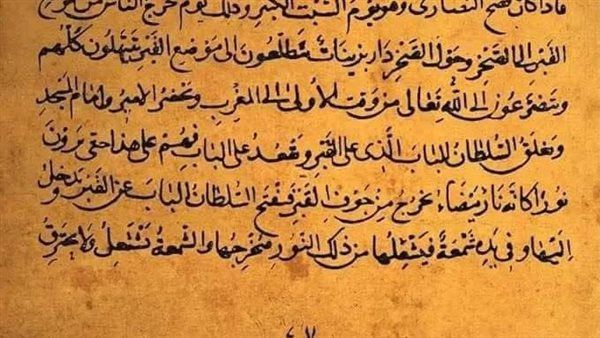 فاذا كان فصح النصارى وهو يوم السبت الكبير وذلك يوم يخرج الناس من موضع
القبر الى ما الصخر وحول الصخر دار بزينات يتطلعون الى موضع القبر يبتهلون كلهم
ويتضرعون الى الله تعالى من وقت الأولى الى المغرب ويحضر الامير وامام المسجد
ويغلق السلطان الباب الذى على القبر ويقعد على الباب فهم على هذا حتى يرون
نورا كانه نار بيضاء يخرج من جوف القبر فيفتح السلطان الباب عن القبر ويدخل
اليها وفي يده شمعة فيشعلها من ذلك النور فيخرجها والشمعة تشتعل ولا يحترق